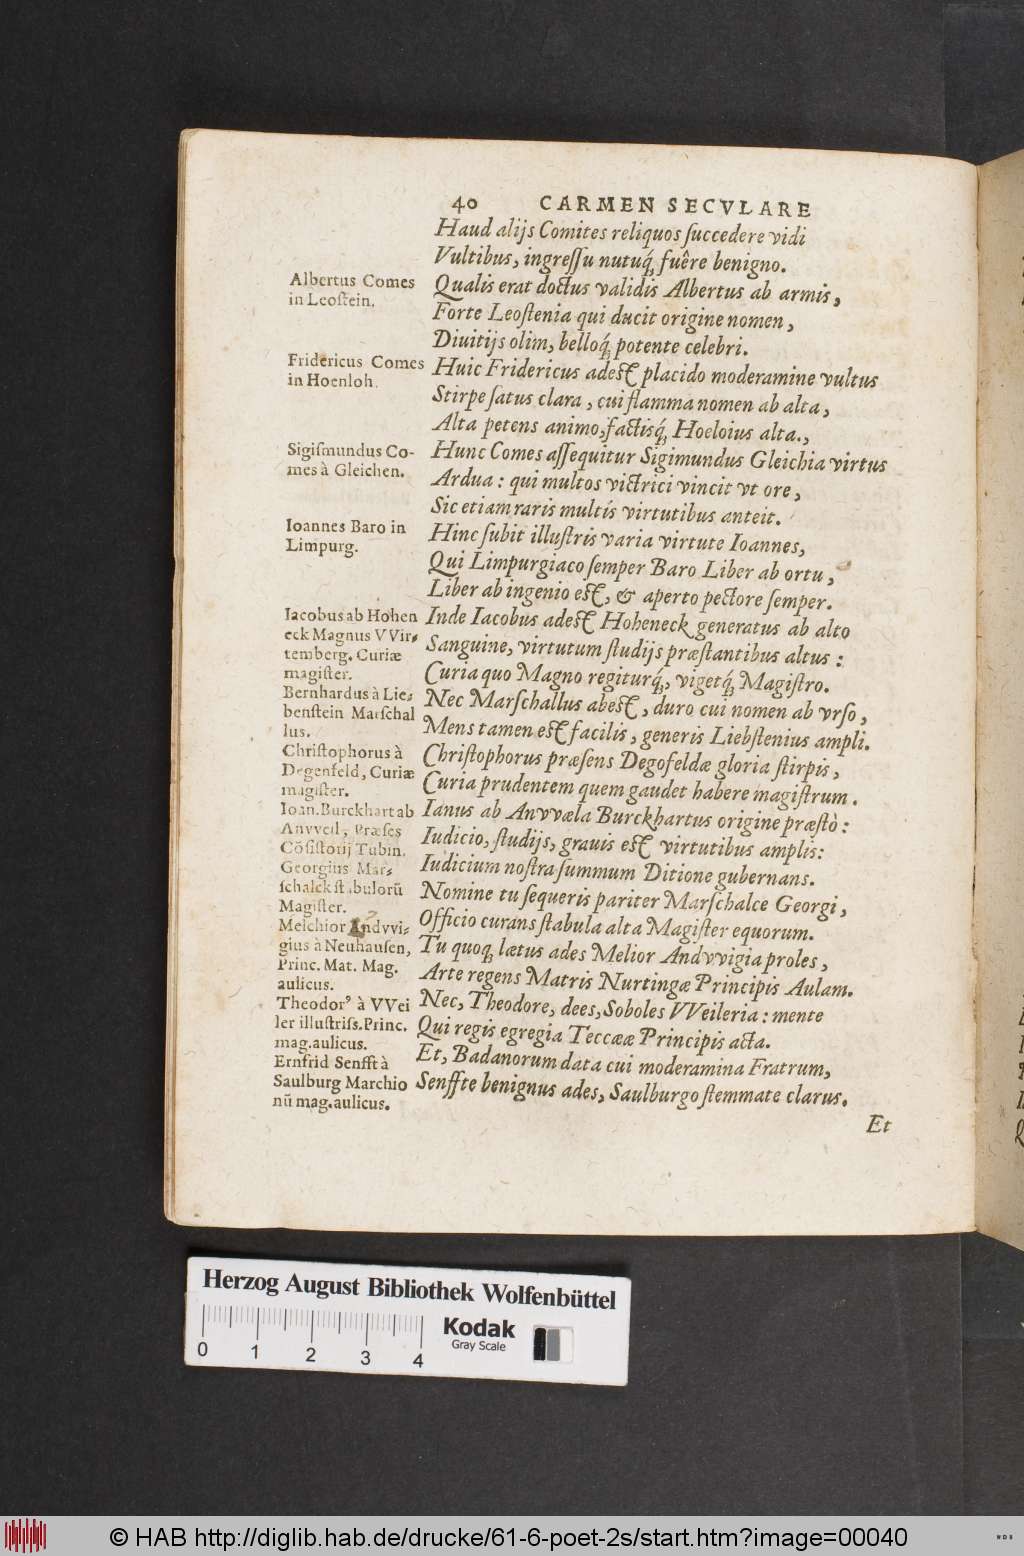 40 CARMEN SECVLARE
Haud alijs Comites reliquos ſuccedere vidi
Vultibus, ingreſſu nutuq́; fuêre benigno.
Albertus Comes
in Leoſtein.
Qualis erat doctus validis Albertus ab armis,
Forte Leoſtenia qui ducit origine nomen,
Diuitijs olim, belloq́; potente celebri.
Fridericus Comes
in Hoenloh.
Huic Fridericus adeſt placido moderamine vultus
Stirpe ſatus clara, cui flamma nomen ab alta,
Alta petens animo, factisq́; Hoeloius alta.,
Sigiſmundus Co-
mes à Gleichen.
Hunc Comes aſſequitur Sigimundus Gleichia virtus
Ardua: qui multos victrici vincit vt ore,
Sic etiam raris multis virtutibus anteit.
Ioannes Baro in
Limpurg.
Hinc ſubit illuſtris varia virtute Ioannes,
Qui Limpurgiaco ſemper Baro Liber ab ortu,
Liber ab ingenio eſt, & aperto pectore ſemper.
Iacobus ab Hohen
eck Magnus VVir-
temberg. Curiæ
magiſter.
Inde Iacobus adeſt Hoheneck generatus ab alto
Sanguine, virtutum ſtudijs præſtantibus altus:
Curia quo Magno regiturq́;, vigetq́; Magiſtro.
Bernhardus à Lie-
benſtein Marſchal
lus.
Nec Marſchallus abeſt, duro cui nomen ab vrſo,
Mens tamen eſt facilis, generis Liebſtenius ampli.
Chriſtophorus à
Degenfeld, Curiæ
magiſter.
Chriſtophorus præſens Degofeldæ gloria ſtirpis,
Curia prudentem quem gaudet habere magiſtrum.
Ioan. Burckhart ab
Anvveil, Præſes
Cõſiſtorij Tubin.
Ianus ab Anvvæla Burckhartus origine præſtò:
Iudicio, ſtudijs, grauis eſt virtutibus amplis:
Iudicium noſtra ſummum Ditione gubernans.
Georgius Mar-
ſchalck ſtabulorũ
Magiſter.
Nomine tu ſequeris pariter Marſchalce Georgi,
Officio curans ſtabula alta Magiſter equorum.
Melchior Andvvi-
gius à Neuhauſen,
Princ. Mat. Mag.
aulicus.
Tu quoq; lætus ades Melior Andvvigia proles,
Arte regens Matris Nurtingæ Principis Aulam.
Theodorꝰ à VVei
ler illuſtriſs. Princ.
mag. aulicus.
Nec, Theodore, dees, Soboles VVeileria: mente
Qui regis egregia Teccææ Principis acta.
Ernfrid Senfft à
Saulburg Marchio
nũ mag. aulicus.
Et, Badanorum data cui moderamina Fratrum,
Senffte benignus ades, Saulburgo ſtemmate clarus.
Et
Herzog August Bibliothek Wolfenbüttel
Kodak
Gray Scale
0 1 2 3 4
© HAB http://diglib.hab.de/drucke/61-6-poet-2s/start.htm?image=00040